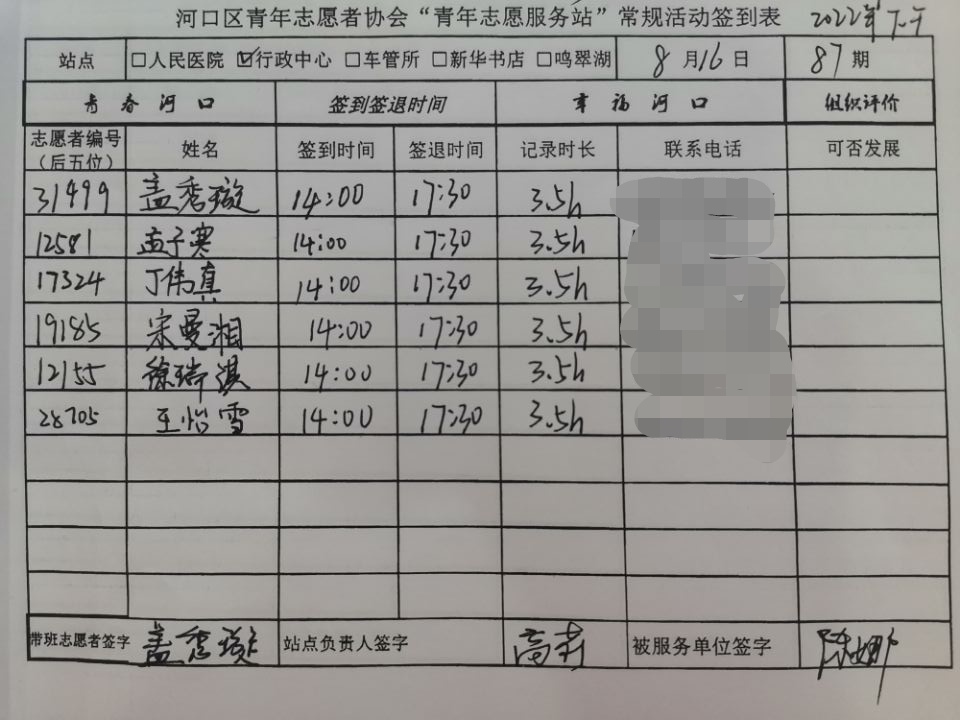 河口区青年志愿者协会“青年志愿服务站”常规活动签到表 2022年下午
站点 □人民医院 ☑行政中心 □车管所 □新华书店 □鸣翠湖 8月16日 87期
青春河口 签到签退时间 幸福河口 组织评价
志愿者编号（后五位） 姓名 签到时间 签退时间 记录时长 联系电话 可否发展
31499 盖秀璇 14:00 17:30 3.5h
12581 孟子寒 14:00 17:30 3.5h
17324 丁伟真 14:00 17:30 3.5h
19185 宋曼湘 14:00 17:30 3.5h
12155 徐瑞淇 14:00 17:30 3.5h
28705 王怡雪 14:00 17:30 3.5h
带班志愿者签字 盖秀璇 站点负责人签字 高莉 被服务单位签字 陈娜